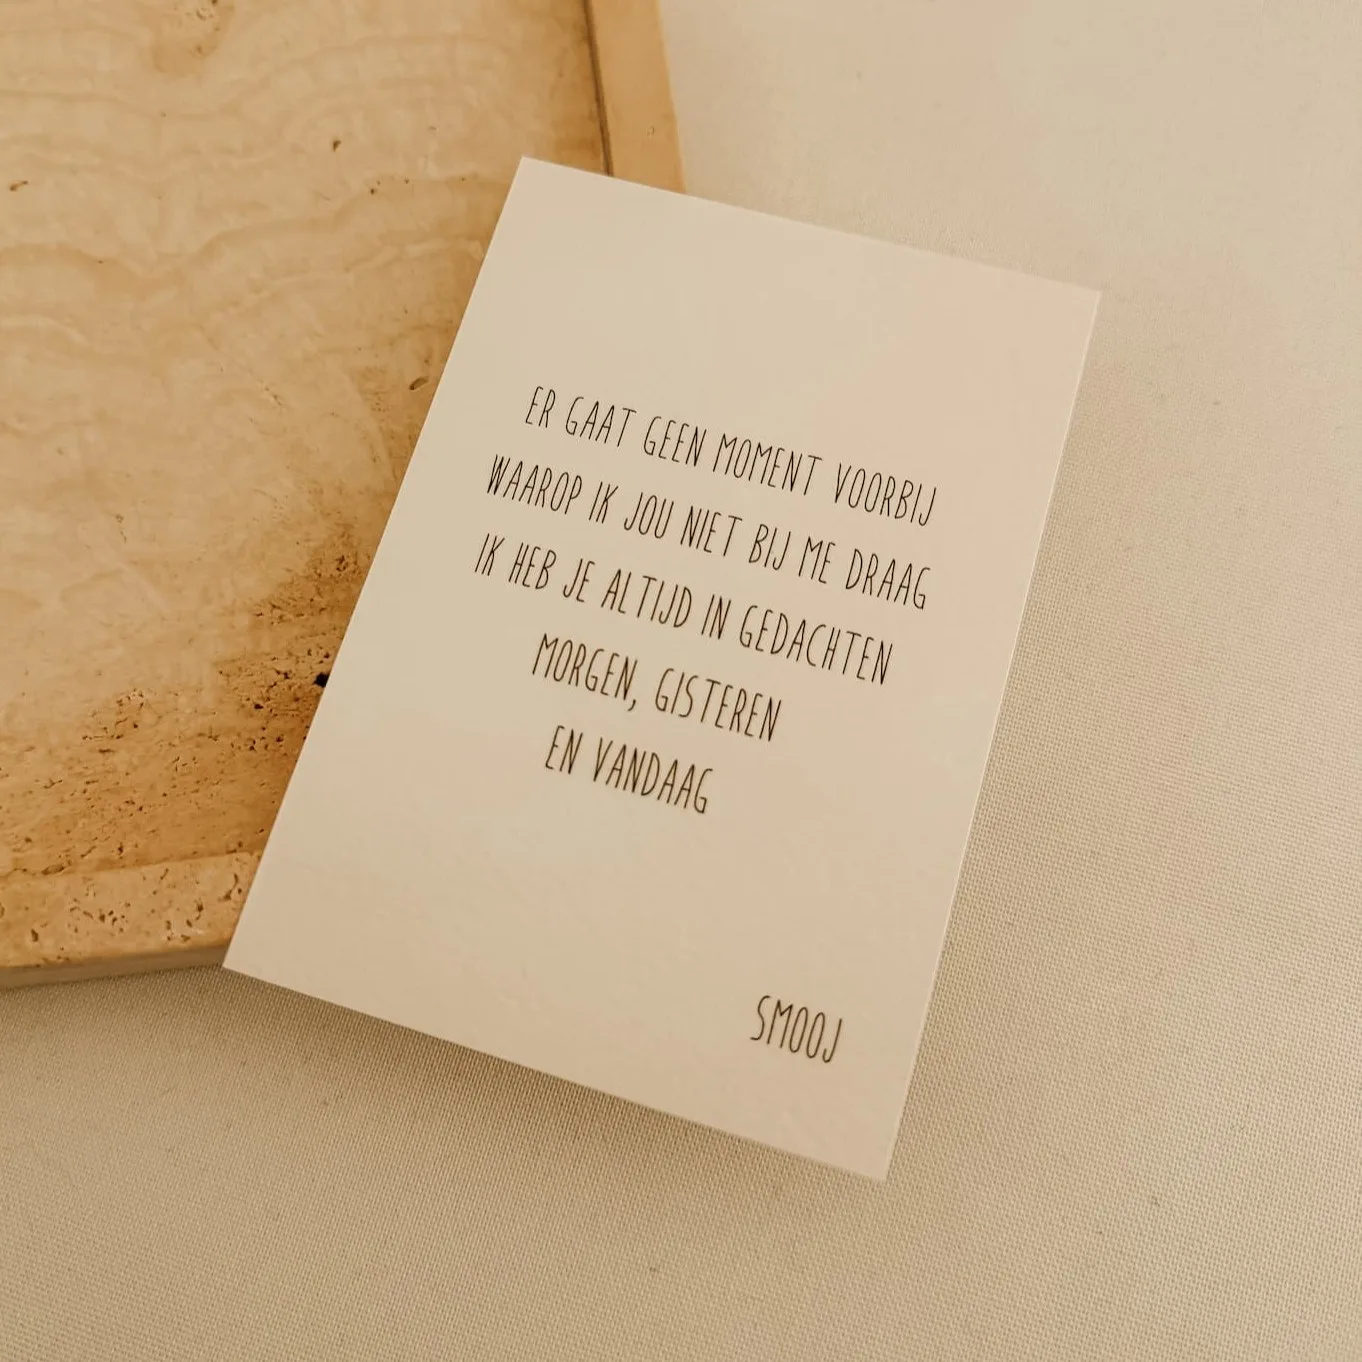 ER GAAT GEEN MOMENT VOORBIJ
WAAROP IK JOU NIET BIJ ME DRAAG
IK HEB JE ALTIJD IN GEDACHTEN
MORGEN, GISTEREN
EN VANDAAG
SMOOJ